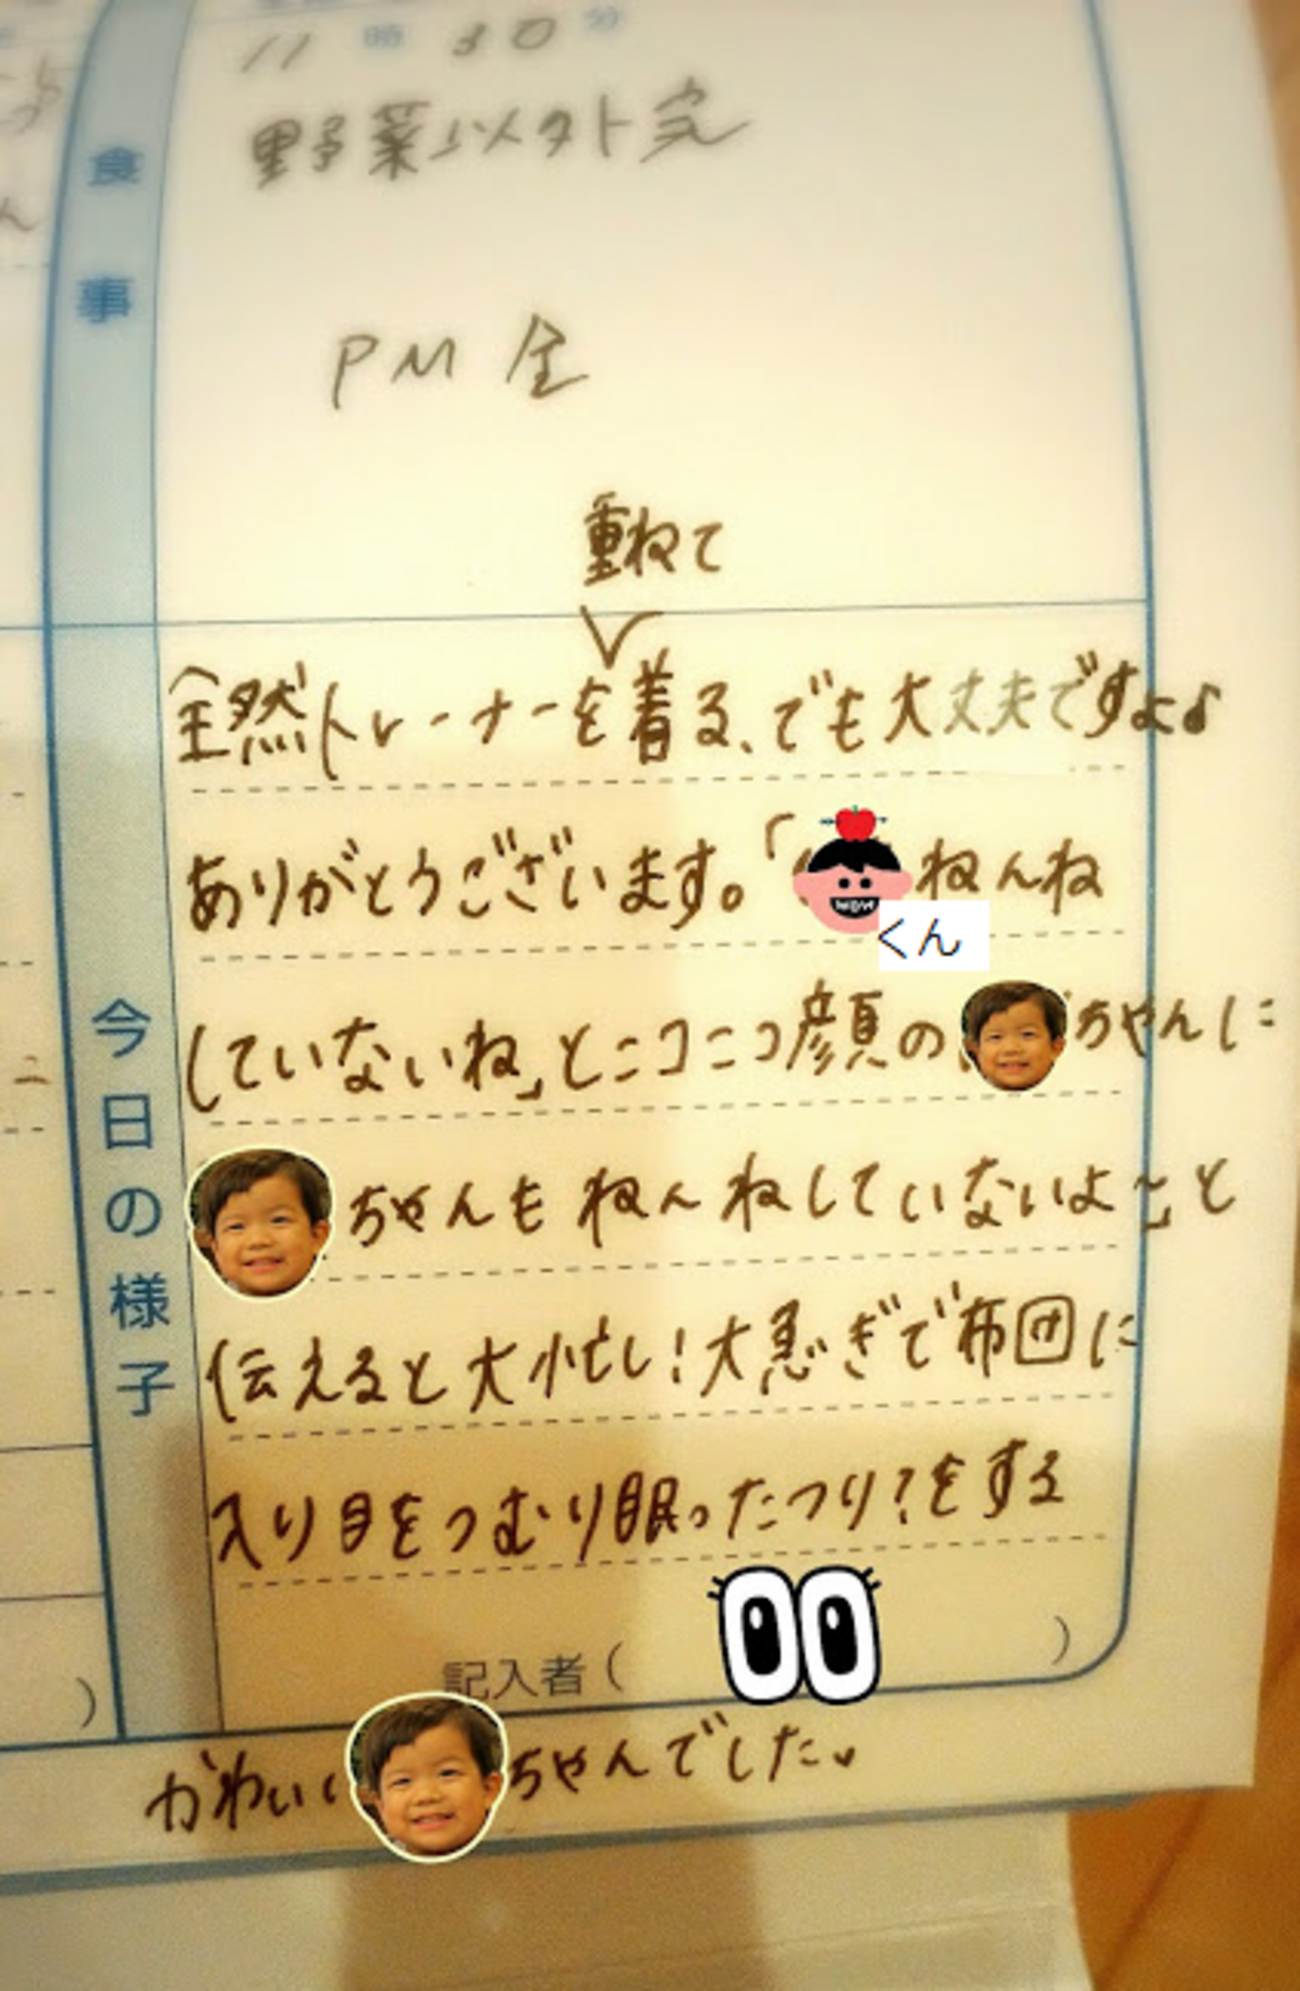 11時30分
食事
野菜以外完
PM 全
重ねて
全然トレーナーを着る、でも大丈夫ですよ♪
ありがとうございます。「くん ねんね
していないね」とニコニコ顔の ちゃんに
今日の様子
ちゃんもねんねしていないよ〜」と
伝えると大忙し!大急ぎで布団に
入り目をつむり眠ったつり?をする
記入者( )
かわいい ちゃんでした。